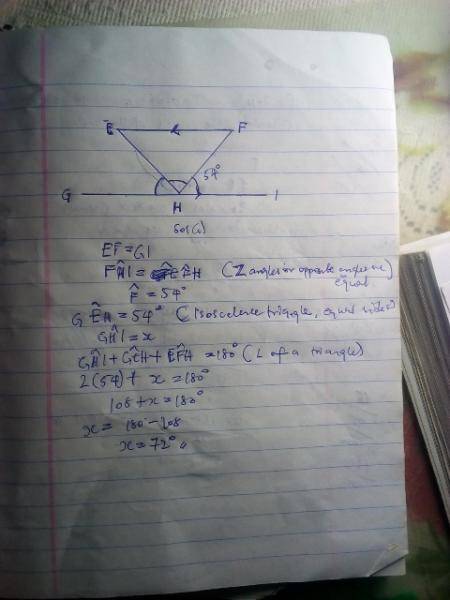 E F
54°
G I
H
Sol(G)
EF = GI
FĤI = EF̂H (Z angles or opposite angles are equal)
F̂ = 54°
GÊH = 54° (Isoscelence triangle, equal sides)
GĤI = x
GĤI + GÊH + EF̂H = 180° (L of a triangle)
2(54) + x = 180°
108 + x = 180°
x = 180 - 108
x = 72°